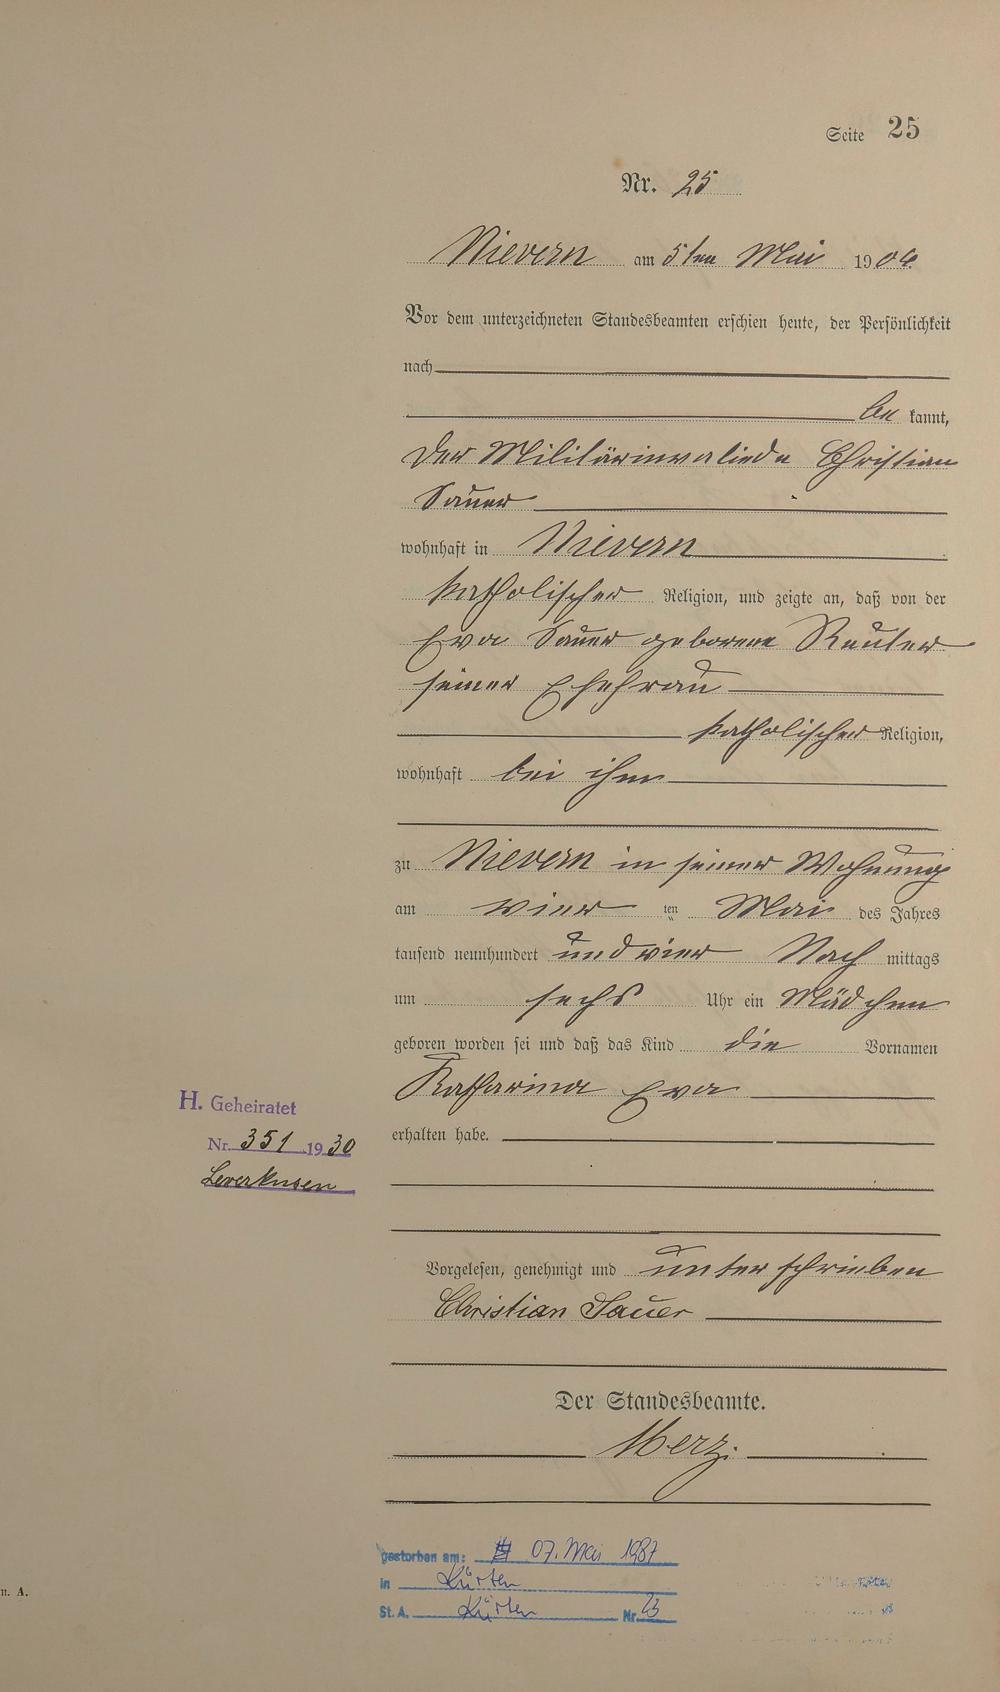 Seite 25
Nr. 25
Nievern am 5ten Mai 1904.
Vor dem unterzeichneten Standesbeamten erschien heute, der Persönlichkeit
nach
be kannt,
der Militärinvaliede Christian
Sauer
wohnhaft in Nievern
katholischer Religion, und zeigte an, daß von der
Eva Sauer geborene Reuter
seiner Ehefrau
katholischer Religion,
wohnhaft bei ihm
zu Nievern in seiner Wohnung
am vier ten Mai des Jahres
tausend neunhundert und vier Nach mittags
um sechs Uhr ein Mädchen
geboren worden sei und daß das Kind die Vornamen
Katharina Eva
H. Geheiratet
erhalten habe.
Nr. 351 1930
Leverkusen
Vorgelesen, genehmigt und unterschrieben
Christian Sauer
Der Standesbeamte.
Merz.
gestorben am: 07. Mai 1987
n. A.
in Kürten
St. A. Kürten Nr. 23